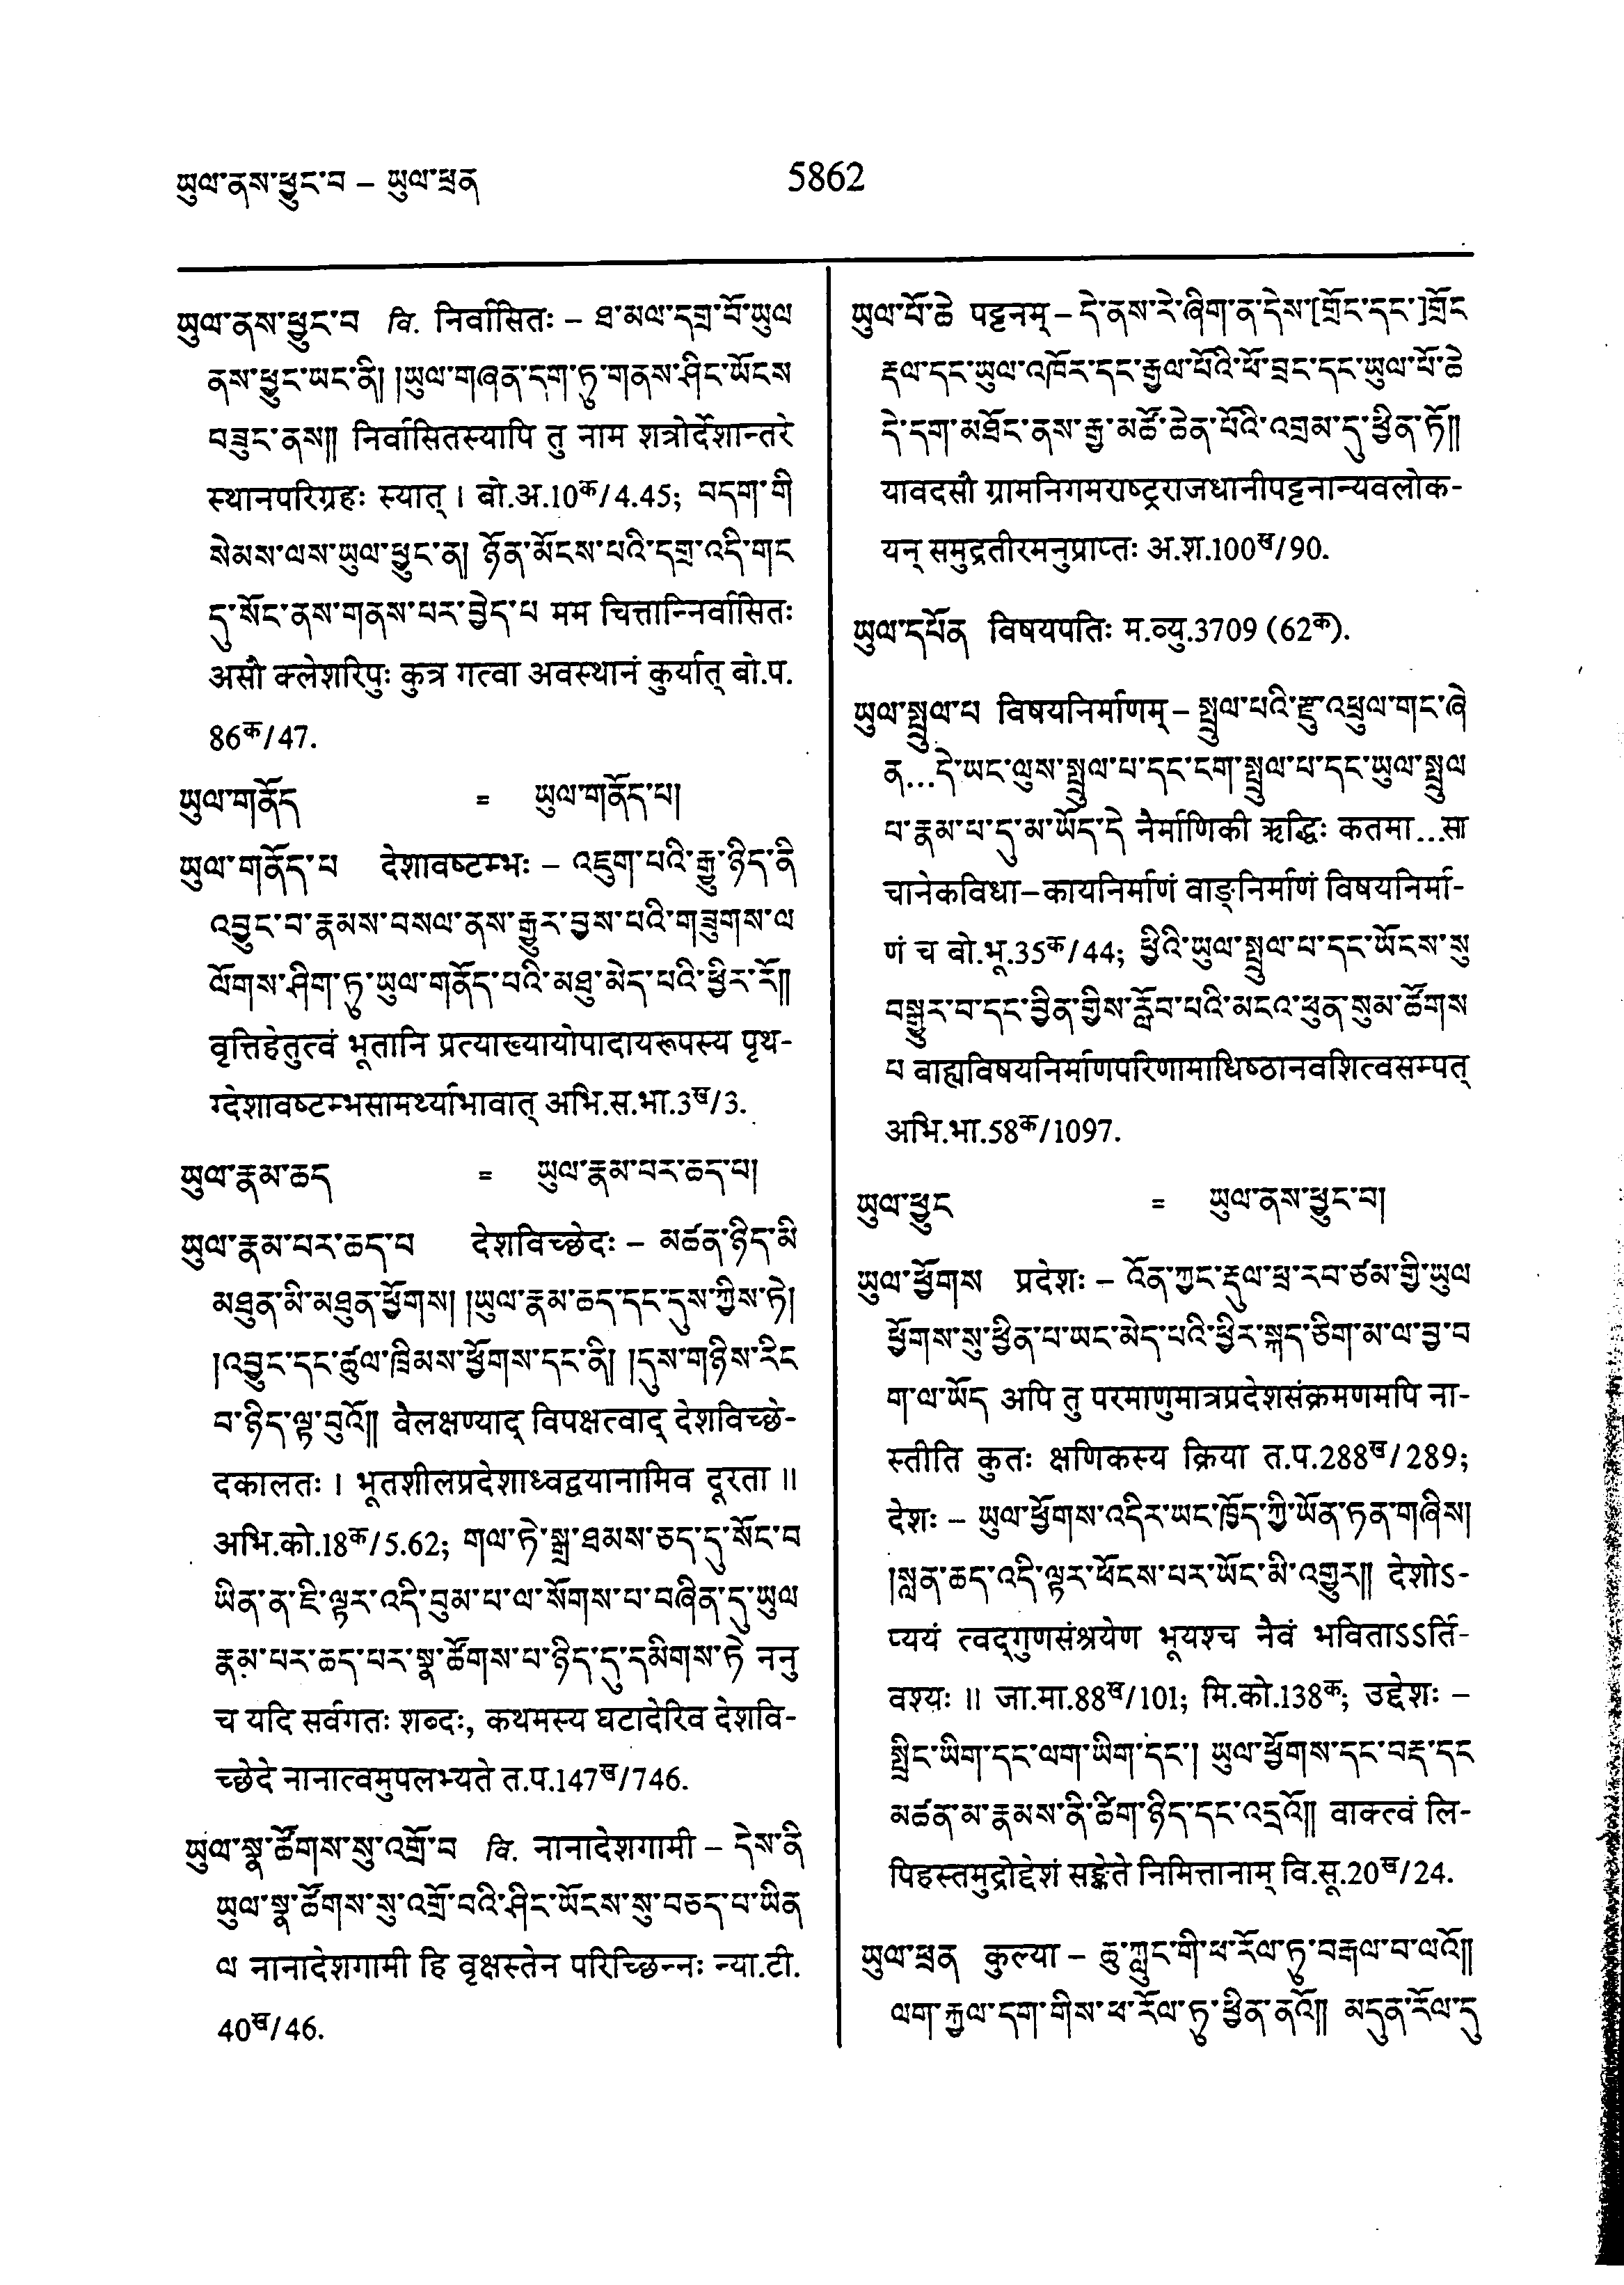 ཡུལ་ནས་ཕྱུང་བ – ཡུལ་ཕྲན
5862
ཡུལ་ནས་ཕྱུང་བ वि. निर्वासितः – ཐ་མལ་དགྲ་བོ་ཡུལ
ནས་ཕྱུང་ཡང་ནི། །ཡུལ་གཞན་དག་ཏུ་གནས་ཤིང་ཡོངས
བཟུང་ནས།། निर्वासितस्यापि तु नाम शत्रोर्देशान्तरे
स्थानपरिग्रहः स्यात् । बो.अ.10क/4.45; བདག་གི
སེམས་ལས་ཡུལ་ཕྱུང་ན། ཉོན་མོངས་པའི་དགྲ་འདི་གང
དུ་སོང་ནས་གནས་པར་བྱེད་པ मम चित्तान्निर्वासितः
असौ क्लेशरिपुः कुत्र गत्वा अवस्थानं कुर्यात् बो.प.
86क/47.
ཡུལ་གནོད = ཡུལ་གནོད་པ།
ཡུལ་གནོད་པ देशावष्टम्भः – འཇུག་པའི་རྒྱུ་ཉིད་ནི
འབྱུང་བ་རྣམས་བསལ་ནས་རྒྱུར་བྱས་པའི་གཟུགས་ལ
ལོགས་ཤིག་ཏུ་ཡུལ་གནོད་པའི་མཐུ་མེད་པའི་ཕྱིར་རོ།།
वृत्तिहेतुत्वं भूतानि प्रत्याख्यायोपादायरूपस्य पृथ-
ग्देशावष्टम्भसामर्थ्याभावात् अभि.स.भा.3ख/3.
ཡུལ་རྣམ་ཆད = ཡུལ་རྣམ་པར་ཆད་པ།
ཡུལ་རྣམ་པར་ཆད་པ देशविच्छेदः – མཚན་ཉིད་མི
མཐུན་མི་མཐུན་ཕྱོགས། །ཡུལ་རྣམ་ཆད་དང་དུས་ཀྱིས་ཏེ།
།འབྱུང་དང་ཚུལ་ཁྲིམས་ཕྱོགས་དང་ནི། །དུས་གཉིས་རིང
བ་ཉིད་ལྟ་བུའོ།། वैलक्षण्याद् विपक्षत्वाद् देशविच्छे-
दकालतः । भूतशीलप्रदेशाध्वद्वयानामिव दूरता ॥
अभि.को.18क/5.62; གལ་ཏེ་སྒྲ་ཐམས་ཅད་དུ་སོང་བ
ཡིན་ན་ཇི་ལྟར་འདི་བུམ་པ་ལ་སོགས་པ་བཞིན་དུ་ཡུལ
རྣམ་པར་ཆད་པར་སྣ་ཚོགས་པ་ཉིད་དུ་དམིགས་ཏེ ननु
च यदि सर्वगतः शब्दः, कथमस्य घटादेरिव देशवि-
च्छेदे नानात्वमुपलभ्यते त.प.147ख/746.
ཡུལ་སྣ་ཚོགས་སུ་འགྲོ་བ वि. नानादेशगामी – དེས་ནི
ཡུལ་སྣ་ཚོགས་སུ་འགྲོ་བའི་ཤིང་ཡོངས་སུ་བཅད་པ་ཡིན
ལ नानादेशगामी हि वृक्षस्तेन परिच्छिन्नः न्या.टी.
40ख/46.
ཡུལ་པོ་ཆེ पट्टनम् – དེ་ནས་རེ་ཞིག་ན་དེས་[གྲོང་དང་]གྲོང
རྡལ་དང་ཡུལ་འཁོར་དང་རྒྱལ་པོའི་ཕོ་བྲང་དང་ཡུལ་པོ་ཆེ
དེ་དག་མཐོང་ནས་རྒྱ་མཚོ་ཆེན་པོའི་འགྲམ་དུ་ཕྱིན་ཏོ།།
यावदसौ ग्रामनिगमराष्ट्रराजधानीपट्टनान्यवलोक-
यन् समुद्रतीरमनुप्राप्तः अ.श.100ख/90.
ཡུལ་དཔོན विषयपतिः म.व्यु.3709 (62क).
ཡུལ་སྤྲུལ་པ विषयनिर्माणम् – སྤྲུལ་པའི་རྫུ་འཕྲུལ་གང་ཞེ
ན...དེ་ཡང་ལུས་སྤྲུལ་པ་དང་ངག་སྤྲུལ་པ་དང་ཡུལ་སྤྲུལ
པ་རྣམ་པ་དུ་མ་ཡོད་དེ नैर्माणिकी ऋद्धिः कतमा...सा
चानेकविधा–कायनिर्माणं वाङ्निर्माणं विषयनिर्मा-
णं च बो.भू.35क/44; ཕྱིའི་ཡུལ་སྤྲུལ་པ་དང་ཡོངས་སུ
བསྒྱུར་བ་དང་བྱིན་གྱིས་རློབ་པའི་མངའ་ཕུན་སུམ་ཚོགས
པ बाह्यविषयनिर्माणपरिणामाधिष्ठानवशित्वसम्पत्
अभि.भा.58क/1097.
ཡུལ་ཕྱུང = ཡུལ་ནས་ཕྱུང་བ།
ཡུལ་ཕྱོགས प्रदेशः – འོན་ཀྱང་རྡུལ་ཕྲ་རབ་ཙམ་གྱི་ཡུལ
ཕྱོགས་སུ་ཕྱིན་པ་ཡང་མེད་པའི་ཕྱིར་སྐད་ཅིག་མ་ལ་བྱ་བ
ག་ལ་ཡོད अपि तु परमाणुमात्रप्रदेशसंक्रमणमपि ना-
स्तीति कुतः क्षणिकस्य क्रिया त.प.288ख/289;
देशः – ཡུལ་ཕྱོགས་འདིར་ཡང་ཁྱོད་ཀྱི་ཡོན་ཏན་གཞིས།
།སླན་ཆད་འདི་ལྟར་ཕོངས་པར་ཡོང་མི་འགྱུར།། देशोऽ-
प्ययं त्वद्गुणसंश्रयेण भूयश्च नैवं भविताऽऽर्ति-
वश्यः ॥ जा.मा.88ख/101; मि.को.138क; उद्देशः –
སྤྲིང་ཡིག་དང་ལག་ཡིག་དང་། ཡུལ་ཕྱོགས་དང་བརྡ་དང
མཚན་མ་རྣམས་ནི་ཚིག་ཉིད་དང་འདྲའོ།། वाक्त्वं लि-
पिहस्तमुद्रोद्देशं सङ्केते निमित्तानाम् वि.सू.20ख/24.
ཡུལ་ཕྲན कुल्या – ཆུ་ཀླུང་གི་ཕ་རོལ་ཏུ་བརྒལ་བ་ལའོ།།
ལག་རྐྱལ་དག་གིས་ཕ་རོལ་ཏུ་ཕྱིན་ནའོ།། མདུན་རོལ་དུ